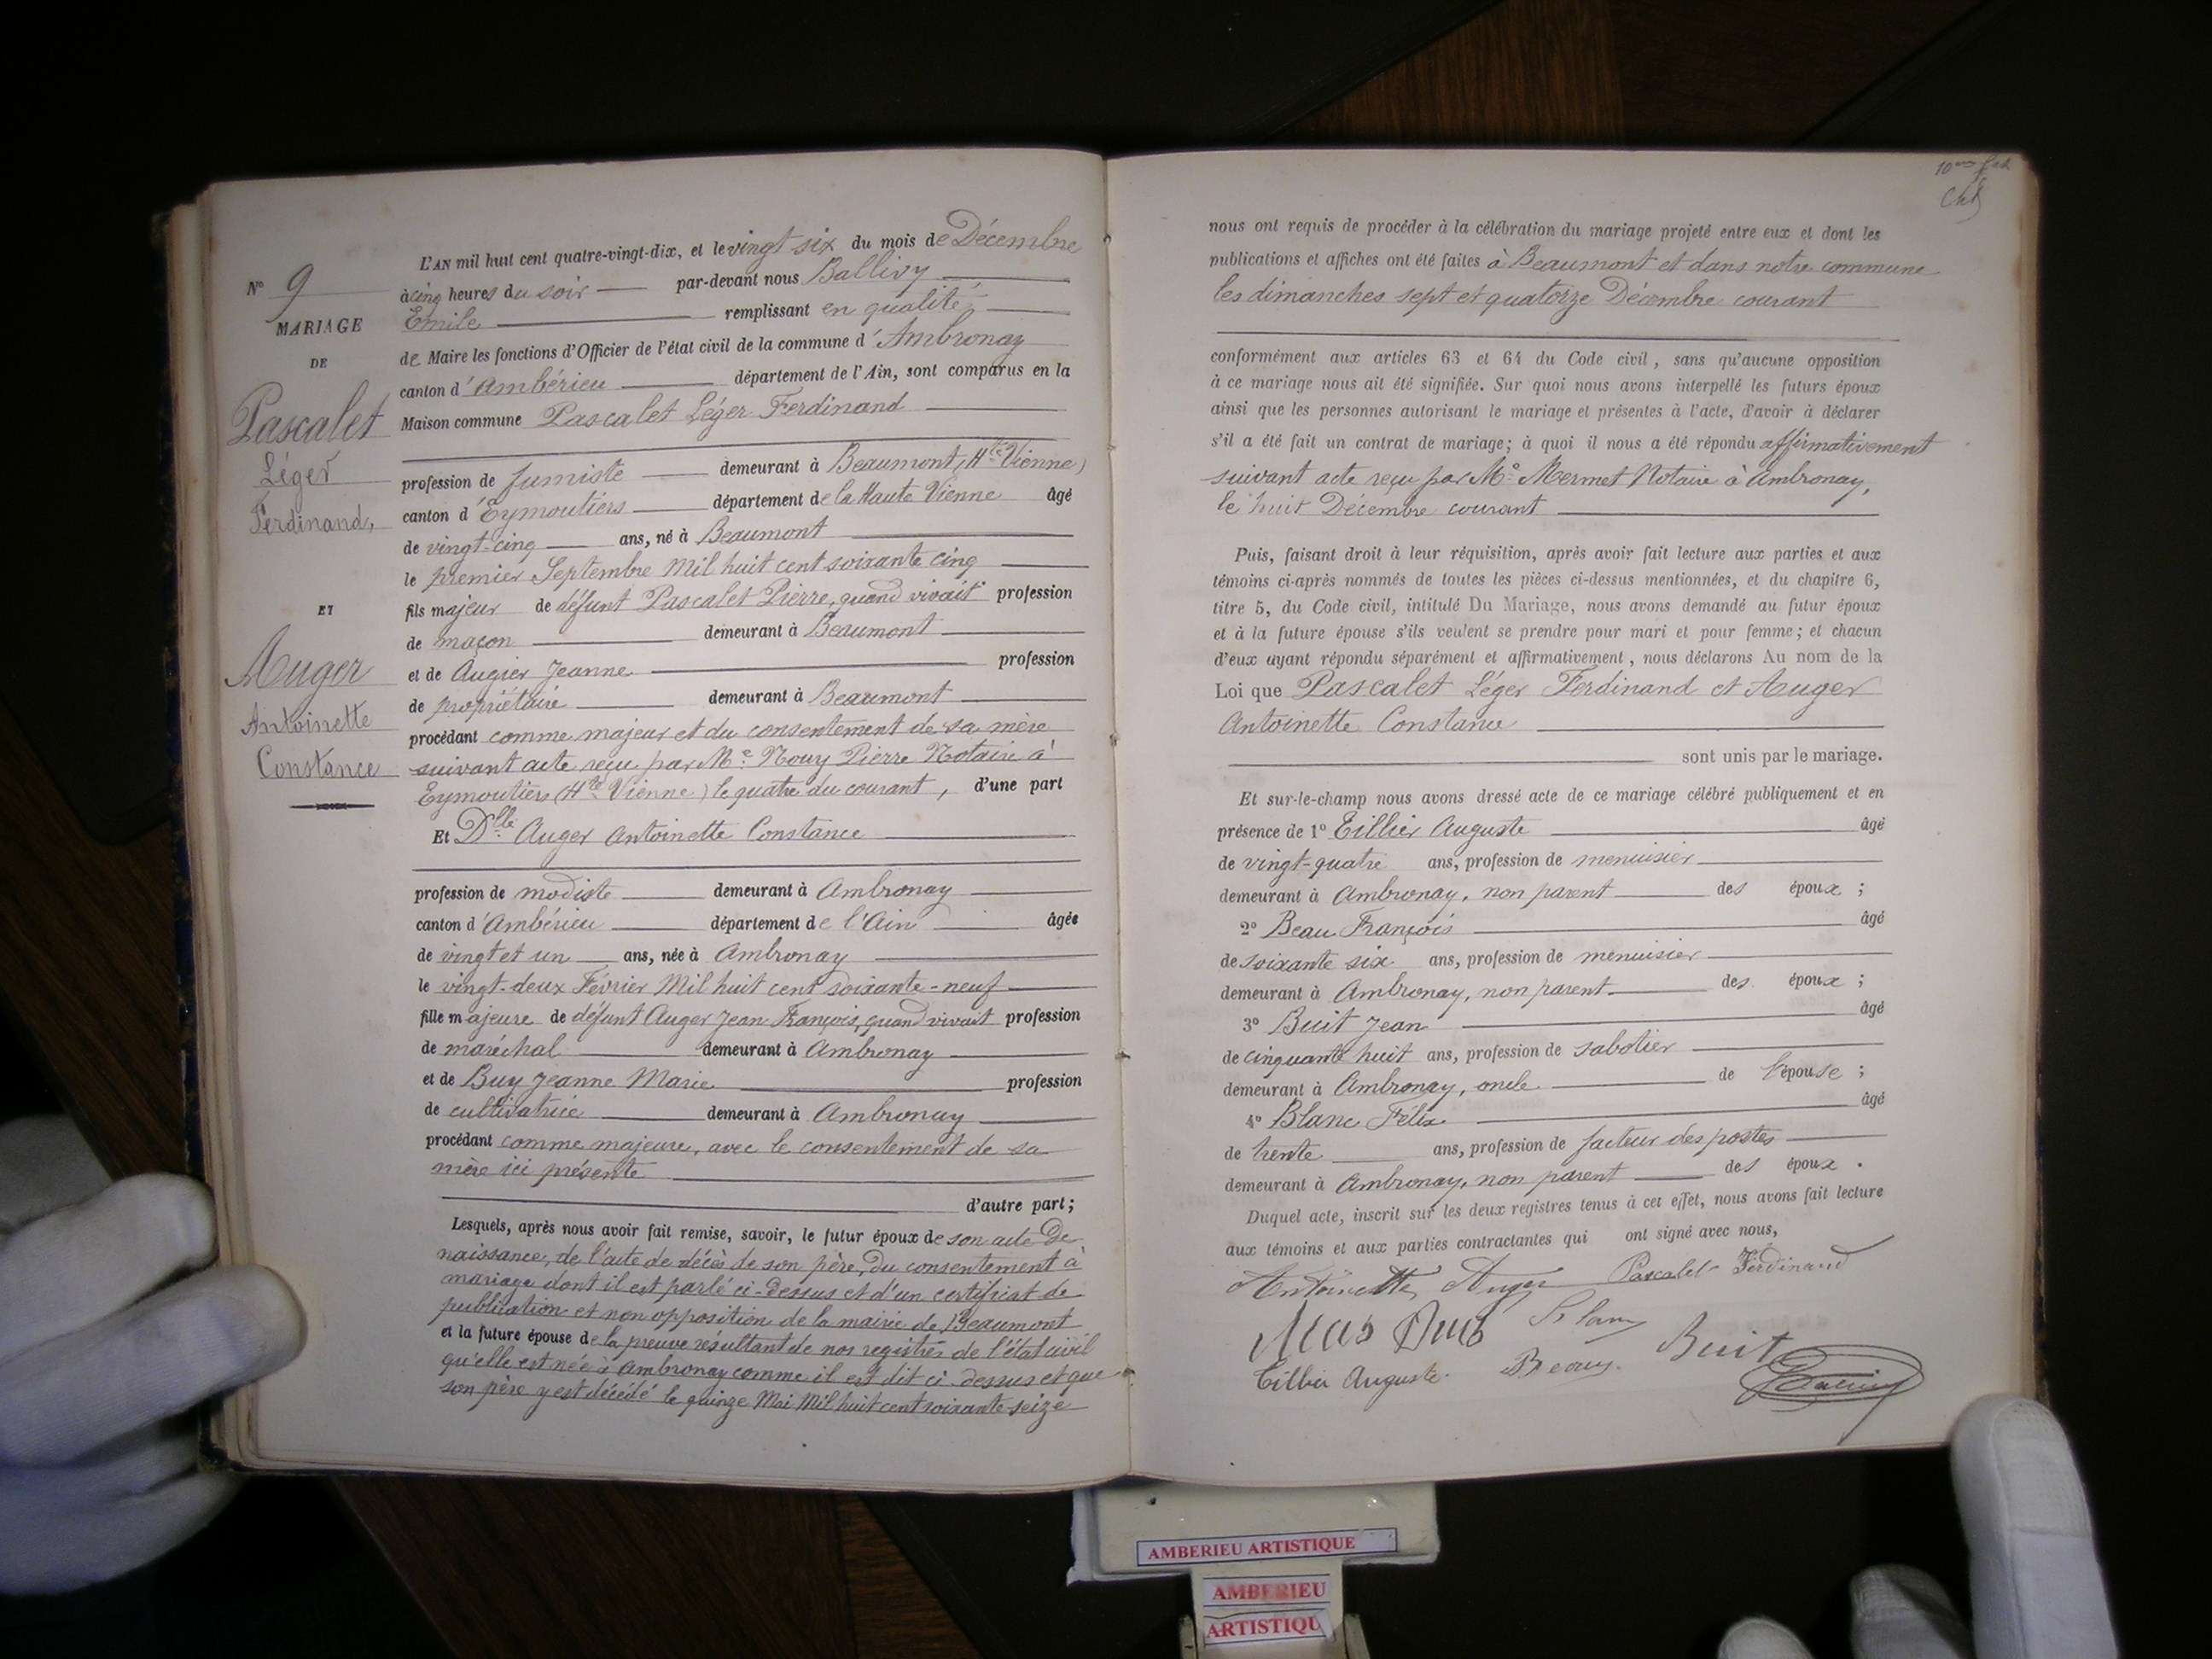 N° 9
MARIAGE
DE
Pascalet
Léger
Ferdinand,
ET
Auger
Antoinette
Constance
L'AN mil huit cent quatre-vingt-dix, et le vingt six du mois de Décembre
à cinq heures du soir par-devant nous Ballivy
Emile remplissant en qualité
de Maire les fonctions d'Officier de l'état civil de la commune d'Ambronay
canton d'Ambérieu département de l'Ain, sont comparus en la
Maison commune Pascalet Léger Ferdinand
profession de fumiste demeurant à Beaumont (Hte Vienne)
canton d'Eymoutiers département de la Haute Vienne âgé
de vingt-cinq ans, né à Beaumont
le premier Septembre Mil huit cent soixante cinq
fils majeur de défunt Pascalet Pierre, quand vivait profession
de maçon demeurant à Beaumont
et de Augier Jeanne profession
de propriétaire demeurant à Beaumont
procédant comme majeur et du consentement de sa mère
suivant acte reçu par Me Nouy Pierre Notaire à
Eymoutiers (Hte Vienne) le quatre du courant, d'une part
Et Dlle Auger Antoinette Constance
profession de modiste demeurant à Ambronay
canton d'Ambérieu département de l'Ain âgée
de vingt et un ans, née à Ambronay
le vingt-deux Février Mil huit cent soixante-neuf
fille majeure de défunt Auger Jean François, quand vivait profession
de maréchal demeurant à Ambronay
et de Buy Jeanne Marie profession
de cultivatrice demeurant à Ambronay
procédant comme majeure, avec le consentement de sa
mère ici présente
d'autre part;
Lesquels, après nous avoir fait remise, savoir, le futur époux de son acte de
naissance, de l'acte de décès de son père, du consentement à
mariage dont il est parlé ci-dessus et d'un certificat de
publication et non opposition de la mairie de Beaumont
et la future épouse de la preuve résultant de nos registres de l'état civil
qu'elle est née à Ambronay comme il est dit ci-dessus et que
son père y est décédé le quinze Mai Mil huit cent soixante-seize
nous ont requis de procéder à la célébration du mariage projeté entre eux et dont les
publications et affiches ont été faites à Beaumont et dans notre commune
les dimanches sept et quatorze Décembre courant
conformément aux articles 63 et 64 du Code civil, sans qu'aucune opposition
à ce mariage nous ait été signifiée. Sur quoi nous avons interpellé les futurs époux
ainsi que les personnes autorisant le mariage et présentes à l'acte, d'avoir à déclarer
s'il a été fait un contrat de mariage; à quoi il nous a été répondu affirmativement
suivant acte reçu par Me Mermet Notaire à Ambronay,
le huit Décembre courant
Puis, faisant droit à leur réquisition, après avoir fait lecture aux parties et aux
témoins ci-après nommés de toutes les pièces ci-dessus mentionnées, et du chapitre 6,
titre 5, du Code civil, intitulé Du Mariage, nous avons demandé au futur époux
et à la future épouse s'ils veulent se prendre pour mari et pour femme; et chacun
d'eux ayant répondu séparément et affirmativement, nous déclarons Au nom de la
Loi que Pascalet Léger Ferdinand et Auger
Antoinette Constance
sont unis par le mariage.
Et sur-le-champ nous avons dressé acte de ce mariage célébré publiquement et en
présence de 1° Tillier Auguste âgé
de vingt-quatre ans, profession de menuisier
demeurant à Ambronay, non parent des époux;
2° Beau François âgé
de soixante six ans, profession de menuisier
demeurant à Ambronay, non parent des époux;
3° Buit Jean âgé
de cinquante huit ans, profession de sabotier
demeurant à Ambronay, oncle de l'épouse;
4° Blanc Félix âgé
de trente ans, profession de facteur des postes
demeurant à Ambronay, non parent des époux.
Duquel acte, inscrit sur les deux registres tenus à cet effet, nous avons fait lecture
aux témoins et aux parties contractantes qui ont signé avec nous,
Antoinette Auger Pascalet Ferdinand
Buit
Tillier Auguste Beau
AMBERIEU ARTISTIQUE
AMBERIEU
ARTISTIQU